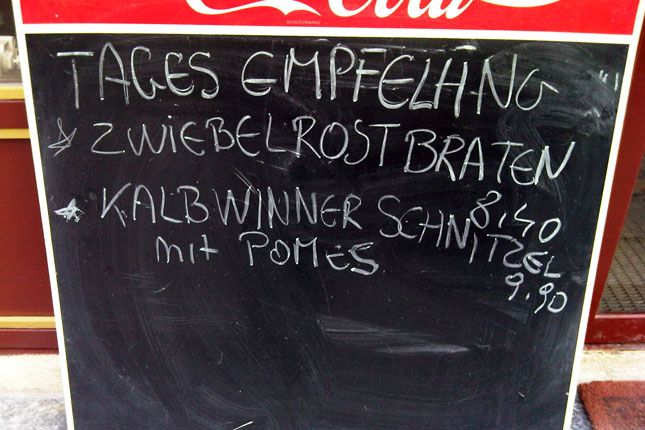 Cola
SCHUTZMARKE
TAGES EMPFELHNG
ZWIEBELROSTBRATEN
8,40
KALBWINNER SCHNITZEL
mit POMES
9.90